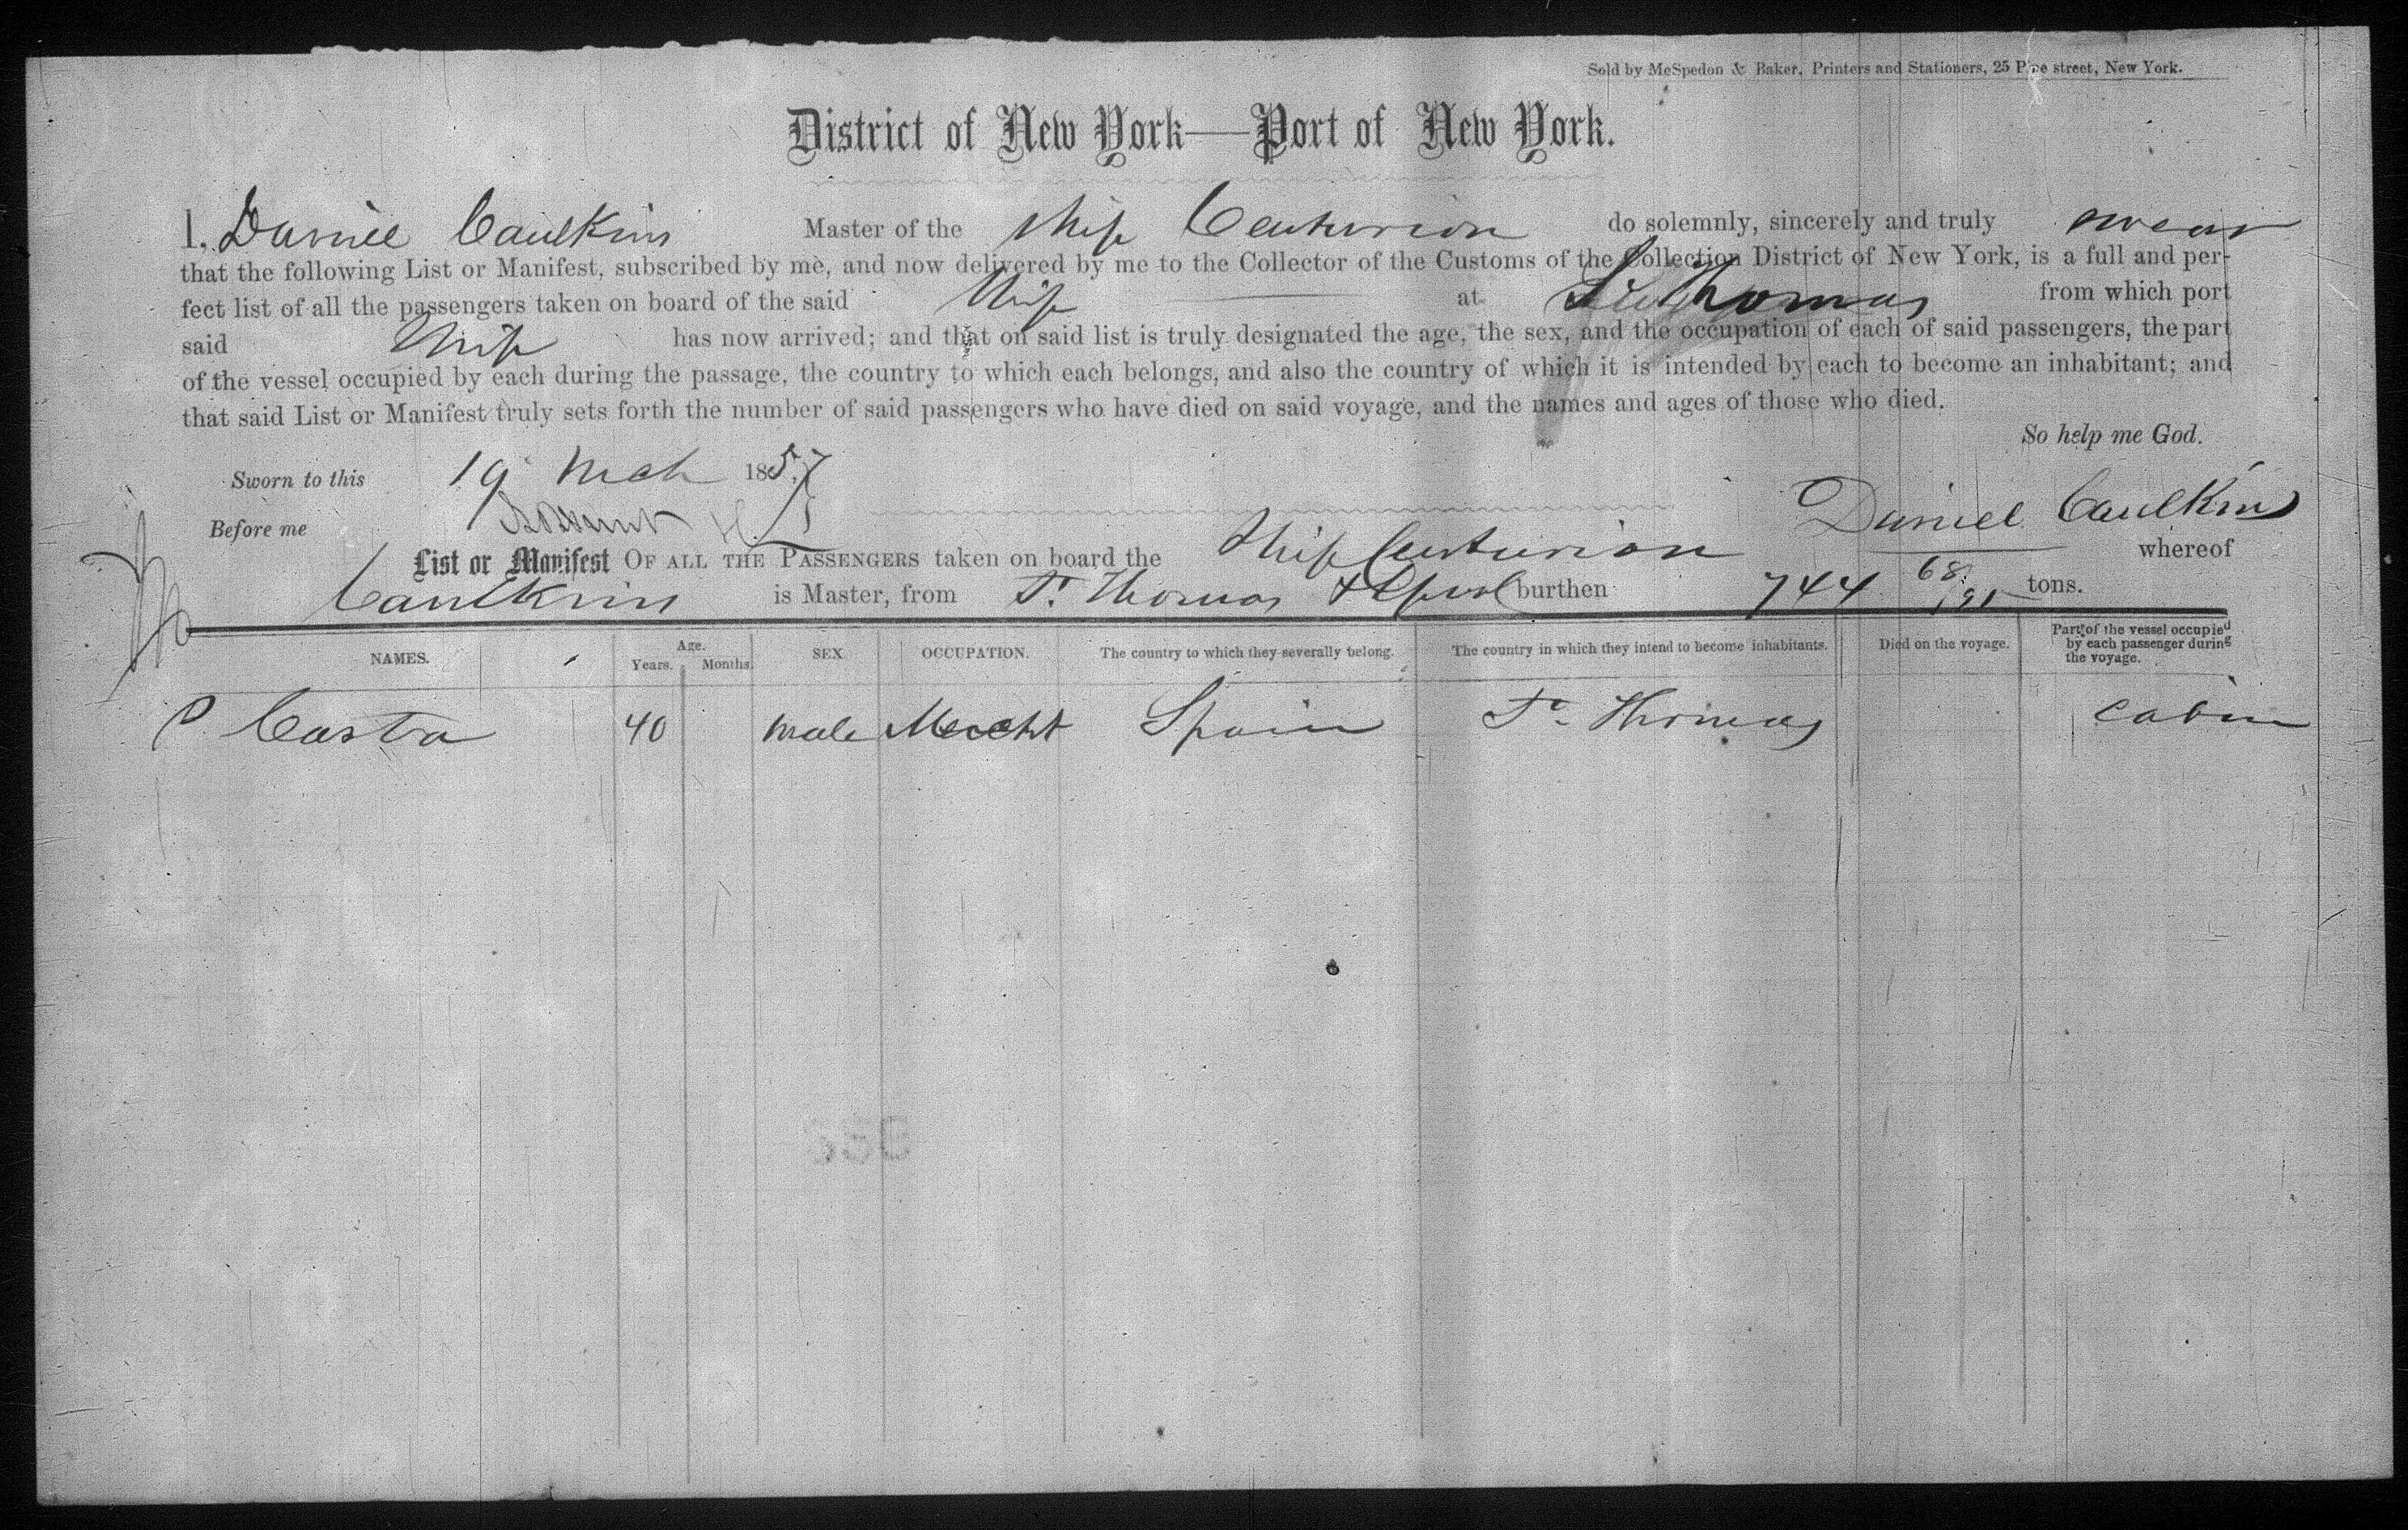 Sold by McSpedon & Baker, Printers and Stationers, 25 Pine street, New York.
District of New York—Port of New York.
I, Daniel Caulkins Master of the Ship Centurion do solemnly, sincerely and truly swear
that the following List or Manifest, subscribed by me, and now delivered by me to the Collector of the Customs of the Collection District of New York, is a full and per-
fect list of all the passengers taken on board of the said Ship at St Thomas from which port
said Ship has now arrived; and that on said list is truly designated the age, the sex, and the occupation of each of said passengers, the part
of the vessel occupied by each during the passage, the country to which each belongs, and also the country of which it is intended by each to become an inhabitant; and
that said List or Manifest truly sets forth the number of said passengers who have died on said voyage, and the names and ages of those who died.
So help me God.
Sworn to this 19 Mch 1857
Daniel Caulkins
Before me
List or Manifest OF ALL THE PASSENGERS taken on board the Ship Centurion whereof
Caulkins is Master, from St Thomas burthen 744 68/95 tons.
NAMES. Age. Years. Months. SEX. OCCUPATION. The country to which they severally belong. The country in which they intend to become inhabitants. Died on the voyage. Part of the vessel occupied by each passenger during the voyage.
P Castro 40 male Mercht Spain St Thomas cabin